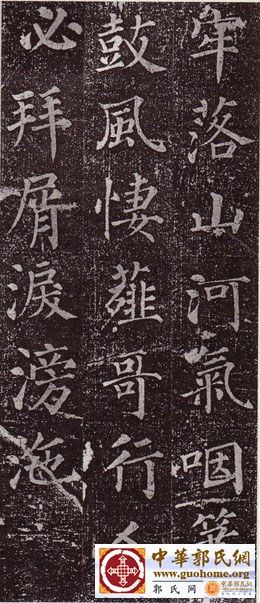 牢落山河氣咽
鼓風悽薤哥行人
必拜屑淚滂沲
中華郭氏網
www.guohome.org